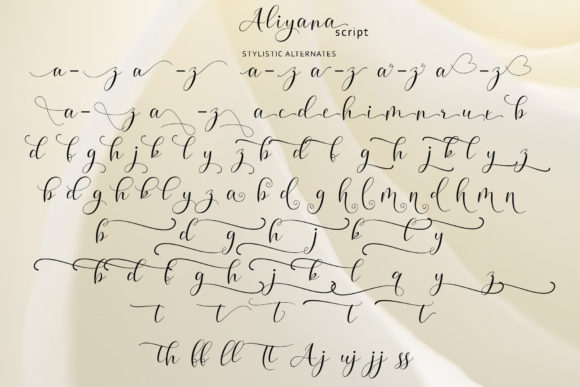 Aliyana script
STYLISTIC ALTERNATES
a-z a-z a-z a-z a-z a-z
a-z a-z a c d e h i m n r u x b
d f g h j k l y z b d f g h j k l y z
b d g h k l y z a b d g h l m n d h m n
b d g h j k l y
b d f g h j k l q y z
t t t t t
th ff ll tt Aj uj jj ss